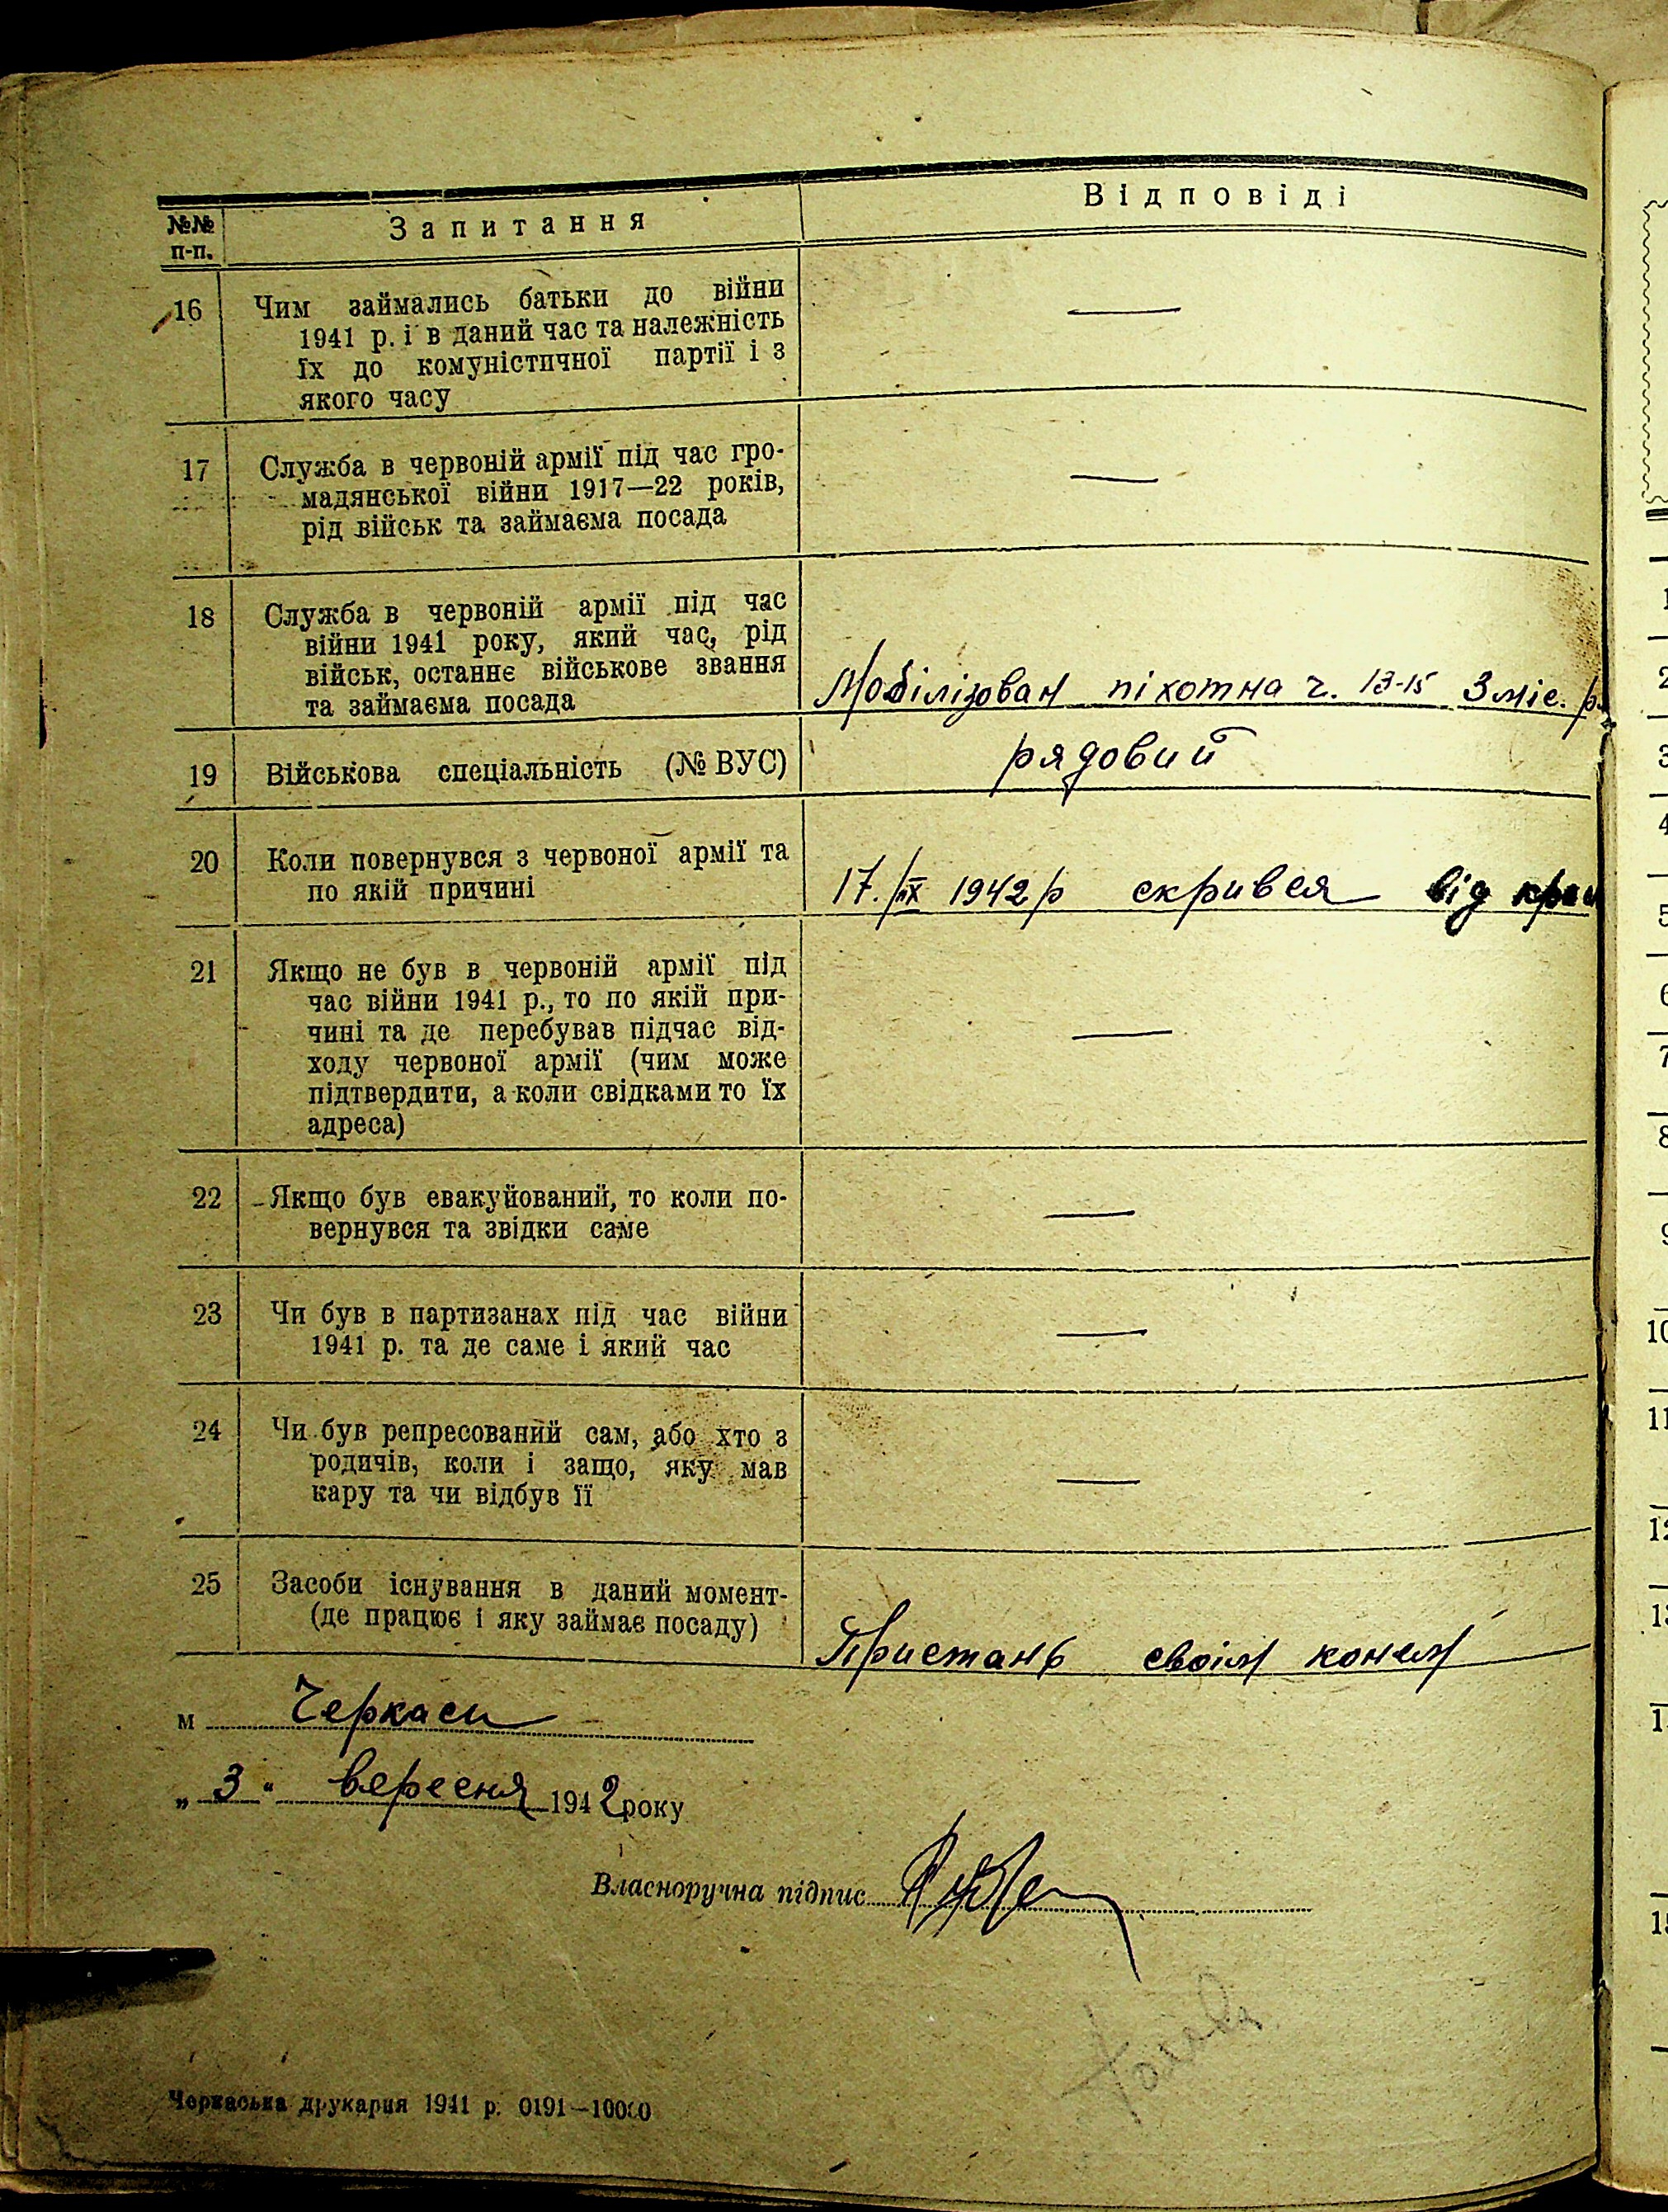 №№ п-п. Запитання Відповіді
16 Чим займались батьки до війни
1941 р. і в даний час та належність
їх до комуністичної партії і з
якого часу —
17 Служба в червоній армії під час гро-
мадянської війни 1917—22 років,
рід військ та займаєма посада —
18 Служба в червоній армії під час
війни 1941 року, який час, рід
військ, останнє військове звання
та займаєма посада
Мобілізован піхотна ч. 13-15 3 міс.
19 Військова спеціальність (№ ВУС) рядовий
20 Коли повернувся з червоної армії та
по якій причині
17. 1942 р скрився від
21 Якщо не був в червоній армії під
час війни 1941 р., то по якій при-
чині та де перебував підчас від-
ходу червоної армії (чим може
підтвердити, а коли свідками то їх
адреса) —
22 Якщо був евакуйований, то коли по-
вернувся та звідки саме —
23 Чи був в партизанах під час війни
1941 р. та де саме і який час —
24 Чи був репресований сам, або хто з
родичів, коли і защо, яку мав
кару та чи відбув її —
25 Засоби існування в даний момент-
(де працює і яку займає посаду)
Пристань своїм конем
м Черкаси
„3" вересня 1942 року
Власноручна підпис
Черкаська друкарня 1941 р. 0191—10000